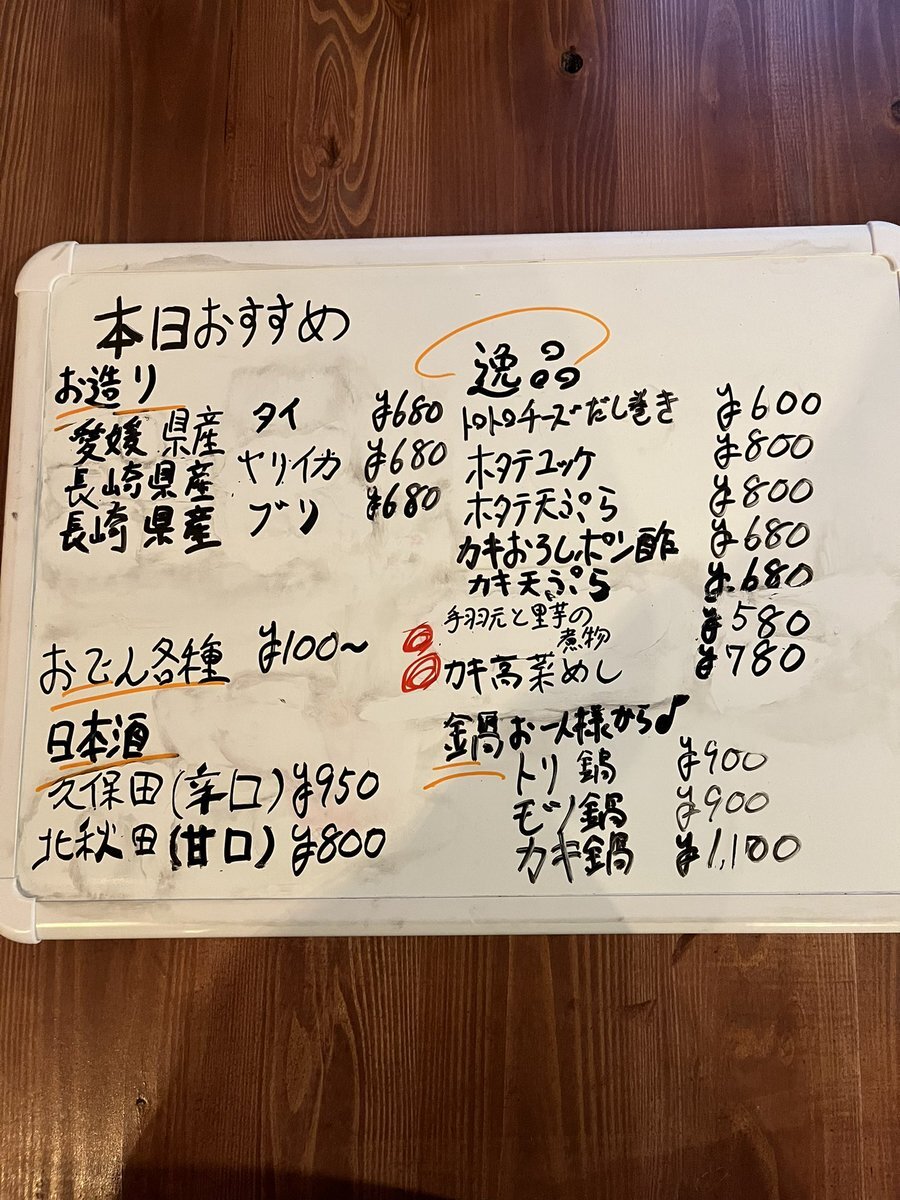 本日おすすめ
お造り
愛媛県産 タイ ¥680
長崎県産 ヤリイカ ¥680
長崎県産 ブリ ¥680
おでん各種 ¥100~
日本酒
久保田(辛口) ¥950
北秋田(甘口) ¥800
逸品
トロトロチーズだし巻き ¥600
ホタテユッケ ¥800
ホタテ天ぷら ¥800
カキおろしポン酢 ¥680
カキ天ぷら ¥680
手羽元と里芋の
煮物 ¥580
カキ高菜めし ¥780
鍋 お一人様から♪
トリ鍋 ¥900
モツ鍋 ¥900
カキ鍋 ¥1,100